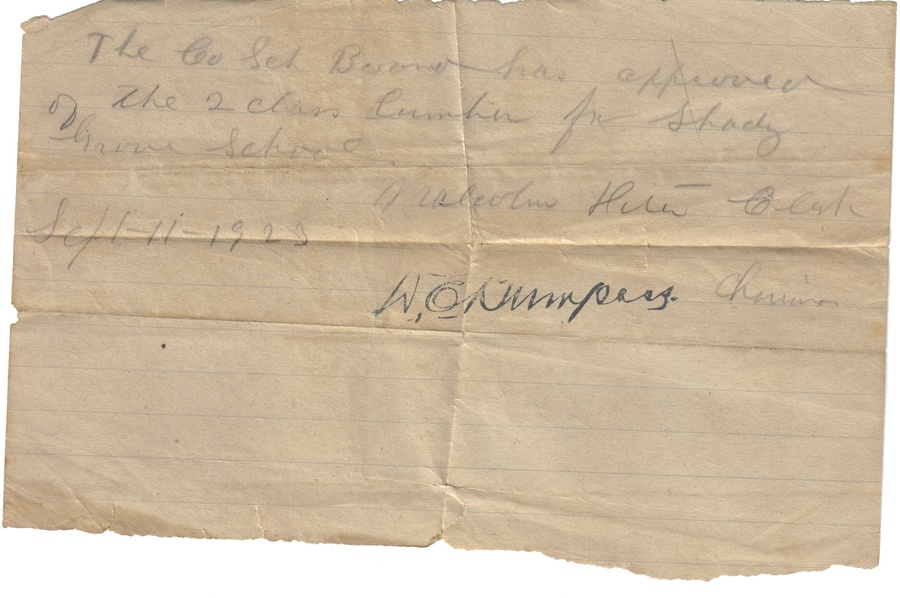 The Co Sch Board has approved
of the 2 class lumber for Shady
Grove School
Malcolm Clerk
Sept-11-1923
W, C Bumpass. Chairman